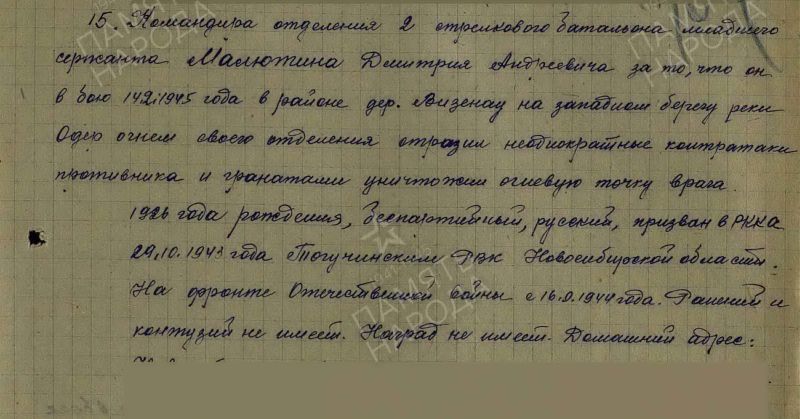 15. Командира отделения 2 стрелкового батальона младшего
сержанта Малютина Дмитрия Андреевича за то, что он
в бою 14.2.1945 года в районе дер. Визенау на западном берегу реки
Одер огнем своего отделения отразил неоднократные контратаки
противника и гранатами уничтожил огневую точку врага.
1926 года рождения, беспартийный, русский, призван в РККА
29.10.1943 года Тогучинским РВК Новосибирской области.
На фронте Отечественной войны с 1944 года. Ранений и
контузий не имеет. Наград не имеет. Домашний адрес:
ПАМЯТЬ НАРОДА
ПАМЯТЬ НАРОДА
ПАМЯТЬ НАРОДА
ПАМЯТЬ НАРОДА